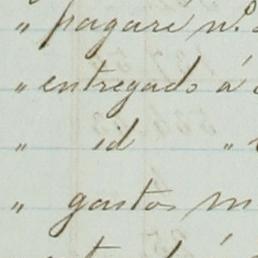 " pagaré nº
" entregado á
" id "
" gastos m